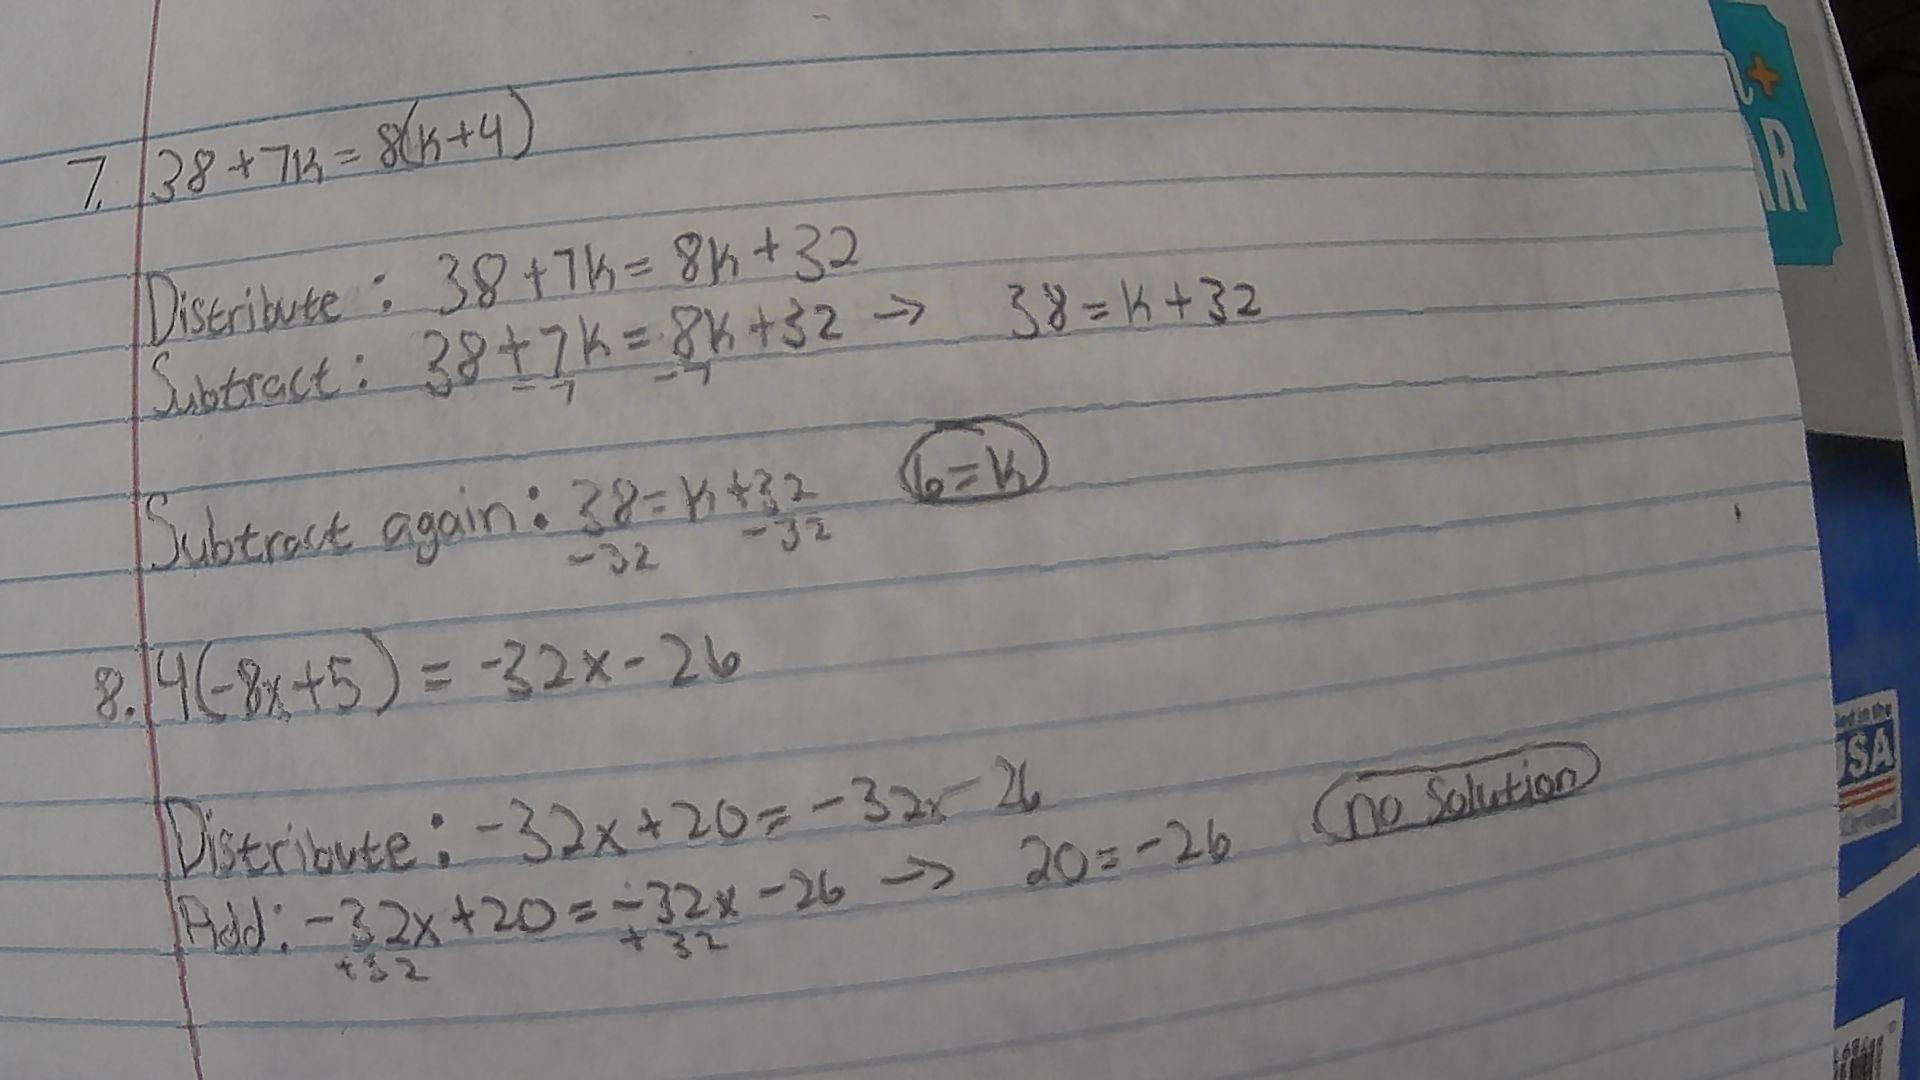 7. 38+7k=8(k+4)
Distribute: 38+7k=8k+32
Subtract: 38+7k=8k+32 → 38=k+32
-7 -7
Subtract again: 38=k+32 6=k
-32 -32
8. 4(-8x+5) = -32x-26
Distribute: -32x+20=-32x-26
Add: -32x+20=-32x-26 → 20=-26 no solution
+32 +32
AR
in the
USA